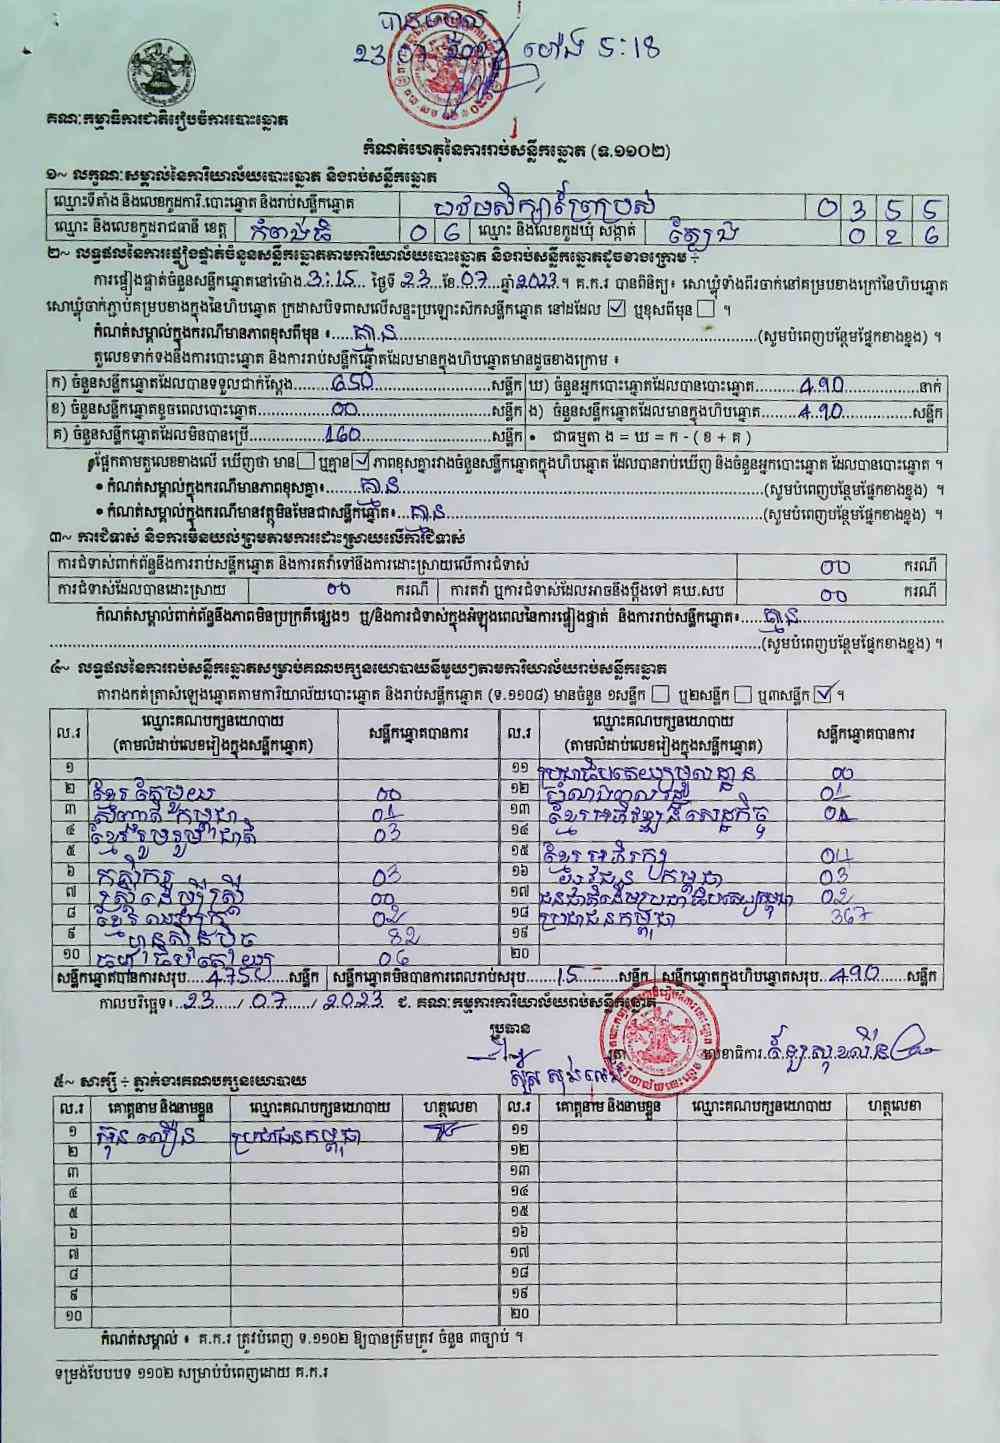 បានចម្លង
23 07 2023 ម៉ោង 5:18
គណៈកម្មាធិការជាតិរៀបចំការបោះឆ្នោត
កំណត់ហេតុនៃការរាប់សន្លឹកឆ្នោត (ទ.១១០២)
១~ លក្ខណៈសម្គាល់នៃការិយាល័យបោះឆ្នោត និងរាប់សន្លឹកឆ្នោត
ឈ្មោះទីតាំង និងលេខកូដការិ.បោះឆ្នោត និងរាប់សន្លឹកឆ្នោត បឋមសិក្សាព្រៃប្រស់ 0 3 5 5
ឈ្មោះ និងលេខកូដរាជធានី ខេត្ត កំពង់ធំ 0 6 ឈ្មោះ និងលេខកូដឃុំ សង្កាត់ ត្បែង 0 2 6
២~ លទ្ធផលនៃការផ្ទៀងផ្ទាត់ចំនួនសន្លឹកឆ្នោតតាមការិយាល័យបោះឆ្នោត និងរាប់សន្លឹកឆ្នោតដូចខាងក្រោម ÷
ការផ្ទៀងផ្ទាត់ចំនួនសន្លឹកឆ្នោតនៅម៉ោង 3:15 ថ្ងៃទី 23 ខែ 07 ឆ្នាំ 2023 ។ គ.ក.រ បានពិនិត្យ៖ សោឃ្មុំទាំងពីរចាក់នៅគម្របខាងក្រៅនៃហិបឆ្នោត
សោឃ្មុំចាក់ភ្ជាប់គម្របខាងក្នុងនៃហិបឆ្នោត ក្រដាសបិទពាសលើសន្ទះប្រឡោះស៊កសន្លឹកឆ្នោត នៅដដែល ☑ ឬខុសពីមុន ☐ ។
កំណត់សម្គាល់ក្នុងករណីមានភាពខុសពីមុន ៖ គ្មាន (សូមបំពេញបន្ថែមផ្នែកខាងខ្នង) ។
តួលេខទាក់ទងនឹងការបោះឆ្នោត និងការរាប់សន្លឹកឆ្នោតដែលមានក្នុងហិបឆ្នោតមានដូចខាងក្រោម ៖
ក) ចំនួនសន្លឹកឆ្នោតដែលបានទទួលជាក់ស្តែង 650 សន្លឹក ឃ) ចំនួនអ្នកបោះឆ្នោតដែលបានបោះឆ្នោត 490 នាក់
ខ) ចំនួនសន្លឹកឆ្នោតខូចពេលបោះឆ្នោត 00 សន្លឹក ង) ចំនួនសន្លឹកឆ្នោតដែលមានក្នុងហិបឆ្នោត 490 សន្លឹក
គ) ចំនួនសន្លឹកឆ្នោតដែលមិនបានប្រើ 160 សន្លឹក • ជាធម្មតា ង = ឃ = ក - ( ខ + គ )
• ផ្អែកតាមតួលេខខាងលើ ឃើញថា មាន ☐ ឬគ្មាន ☑ ភាពខុសគ្នារវាងចំនួនសន្លឹកឆ្នោតក្នុងហិបឆ្នោត ដែលបានរាប់ឃើញ និងចំនួនអ្នកបោះឆ្នោត ដែលបានបោះឆ្នោត ។
• កំណត់សម្គាល់ក្នុងករណីមានភាពខុសគ្នា៖ គ្មាន (សូមបំពេញបន្ថែមផ្នែកខាងខ្នង) ។
• កំណត់សម្គាល់ក្នុងករណីមានវត្ថុមិនមែនជាសន្លឹកឆ្នោត៖ គ្មាន (សូមបំពេញបន្ថែមផ្នែកខាងខ្នង) ។
៣~ ការជំទាស់ និងការមិនយល់ព្រមតាមការដោះស្រាយលើការជំទាស់
ការជំទាស់ពាក់ព័ន្ធនឹងការរាប់សន្លឹកឆ្នោត និងការតវ៉ាទៅនឹងការដោះស្រាយលើការជំទាស់ 00 ករណី
ការជំទាស់ដែលបានដោះស្រាយ 00 ករណី ការតវ៉ា ឬការជំទាស់ដែលអាចនឹងប្តឹងទៅ គឃ.សប 00 ករណី
កំណត់សម្គាល់ពាក់ព័ន្ធនឹងភាពមិនប្រក្រតីផ្សេងៗ ឬ/និងការជំទាស់ក្នុងអំឡុងពេលនៃការផ្ទៀងផ្ទាត់ និងការរាប់សន្លឹកឆ្នោត៖ គ្មាន
(សូមបំពេញបន្ថែមផ្នែកខាងខ្នង) ។
៤~ លទ្ធផលនៃការរាប់សន្លឹកឆ្នោតសម្រាប់គណបក្សនយោបាយនីមួយៗតាមការិយាល័យរាប់សន្លឹកឆ្នោត
តារាងកត់ត្រាសំឡេងឆ្នោតតាមការិយាល័យបោះឆ្នោត និងរាប់សន្លឹកឆ្នោត (ទ.១១០៨) មានចំនួន ១សន្លឹក ☐ ឬ២សន្លឹក ☐ ឬ៣សន្លឹក ☑ ។
ល.រ ឈ្មោះគណបក្សនយោបាយ (តាមលំដាប់លេខរៀងក្នុងសន្លឹកឆ្នោត) សន្លឹកឆ្នោតបានការ ល.រ ឈ្មោះគណបក្សនយោបាយ (តាមលំដាប់លេខរៀងក្នុងសន្លឹកឆ្នោត) សន្លឹកឆ្នោតបានការ
១ ១១ ប្រជាធិបតេយ្យមូលដ្ឋាន 00
២ ខ្មែរតែមួយ 00 ១២ កម្លាំងពលរដ្ឋ 01
៣ សញ្ជាតិកម្ពុជា 01 ១៣ ខ្មែរអភិវឌ្ឍន៍សេដ្ឋកិច្ច 01
៤ ខ្មែររួបរួមជាតិ 03 ១៤
៥ ១៥ ខ្មែរអភិរក្ស 04
៦ កសិករ 03 ១៦ យុវជនកម្ពុជា 03
៧ ស្ត្រីដើម្បីស្ត្រី 00 ១៧ ជនជាតិដើមប្រជាធិបតេយ្យកម្ពុជា 02
៨ ខ្មែរឈប់ក្រ 02 ១៨ ប្រជាជនកម្ពុជា 367
៩ ហ្វ៊ុនស៊ិនប៉ិច 82 ១៩
១០ ធម្មាធិបតេយ្យ 06 ២០
សន្លឹកឆ្នោតបានការសរុប 475 សន្លឹក សន្លឹកឆ្នោតមិនបានការពេលរាប់សរុប 15 សន្លឹក សន្លឹកឆ្នោតក្នុងហិបឆ្នោតសរុប 490 សន្លឹក
កាលបរិច្ឆេទ៖ 23 / 07 / 2023 ជ. គណៈកម្មការការិយាល័យរាប់សន្លឹកឆ្នោត
ប្រធាន
ត្រា លេខាធិការ
៥~ សាក្សី ÷ ភ្នាក់ងារគណបក្សនយោបាយ
ល.រ គោត្តនាម និងនាមខ្លួន ឈ្មោះគណបក្សនយោបាយ ហត្ថលេខា ល.រ គោត្តនាម និងនាមខ្លួន ឈ្មោះគណបក្សនយោបាយ ហត្ថលេខា
១ អ៊ុន លឿន ប្រជាជនកម្ពុជា ១១
២ ១២
៣ ១៣
៤ ១៤
៥ ១៥
៦ ១៦
៧ ១៧
៨ ១៨
៩ ១៩
១០ ២០
កំណត់សម្គាល់ ៖ គ.ក.រ ត្រូវបំពេញ ទ.១១០២ ឱ្យបានត្រឹមត្រូវ ចំនួន ៣ច្បាប់ ។
ទម្រង់បែបបទ ១១០២ សម្រាប់បំពេញដោយ គ.ក.រ